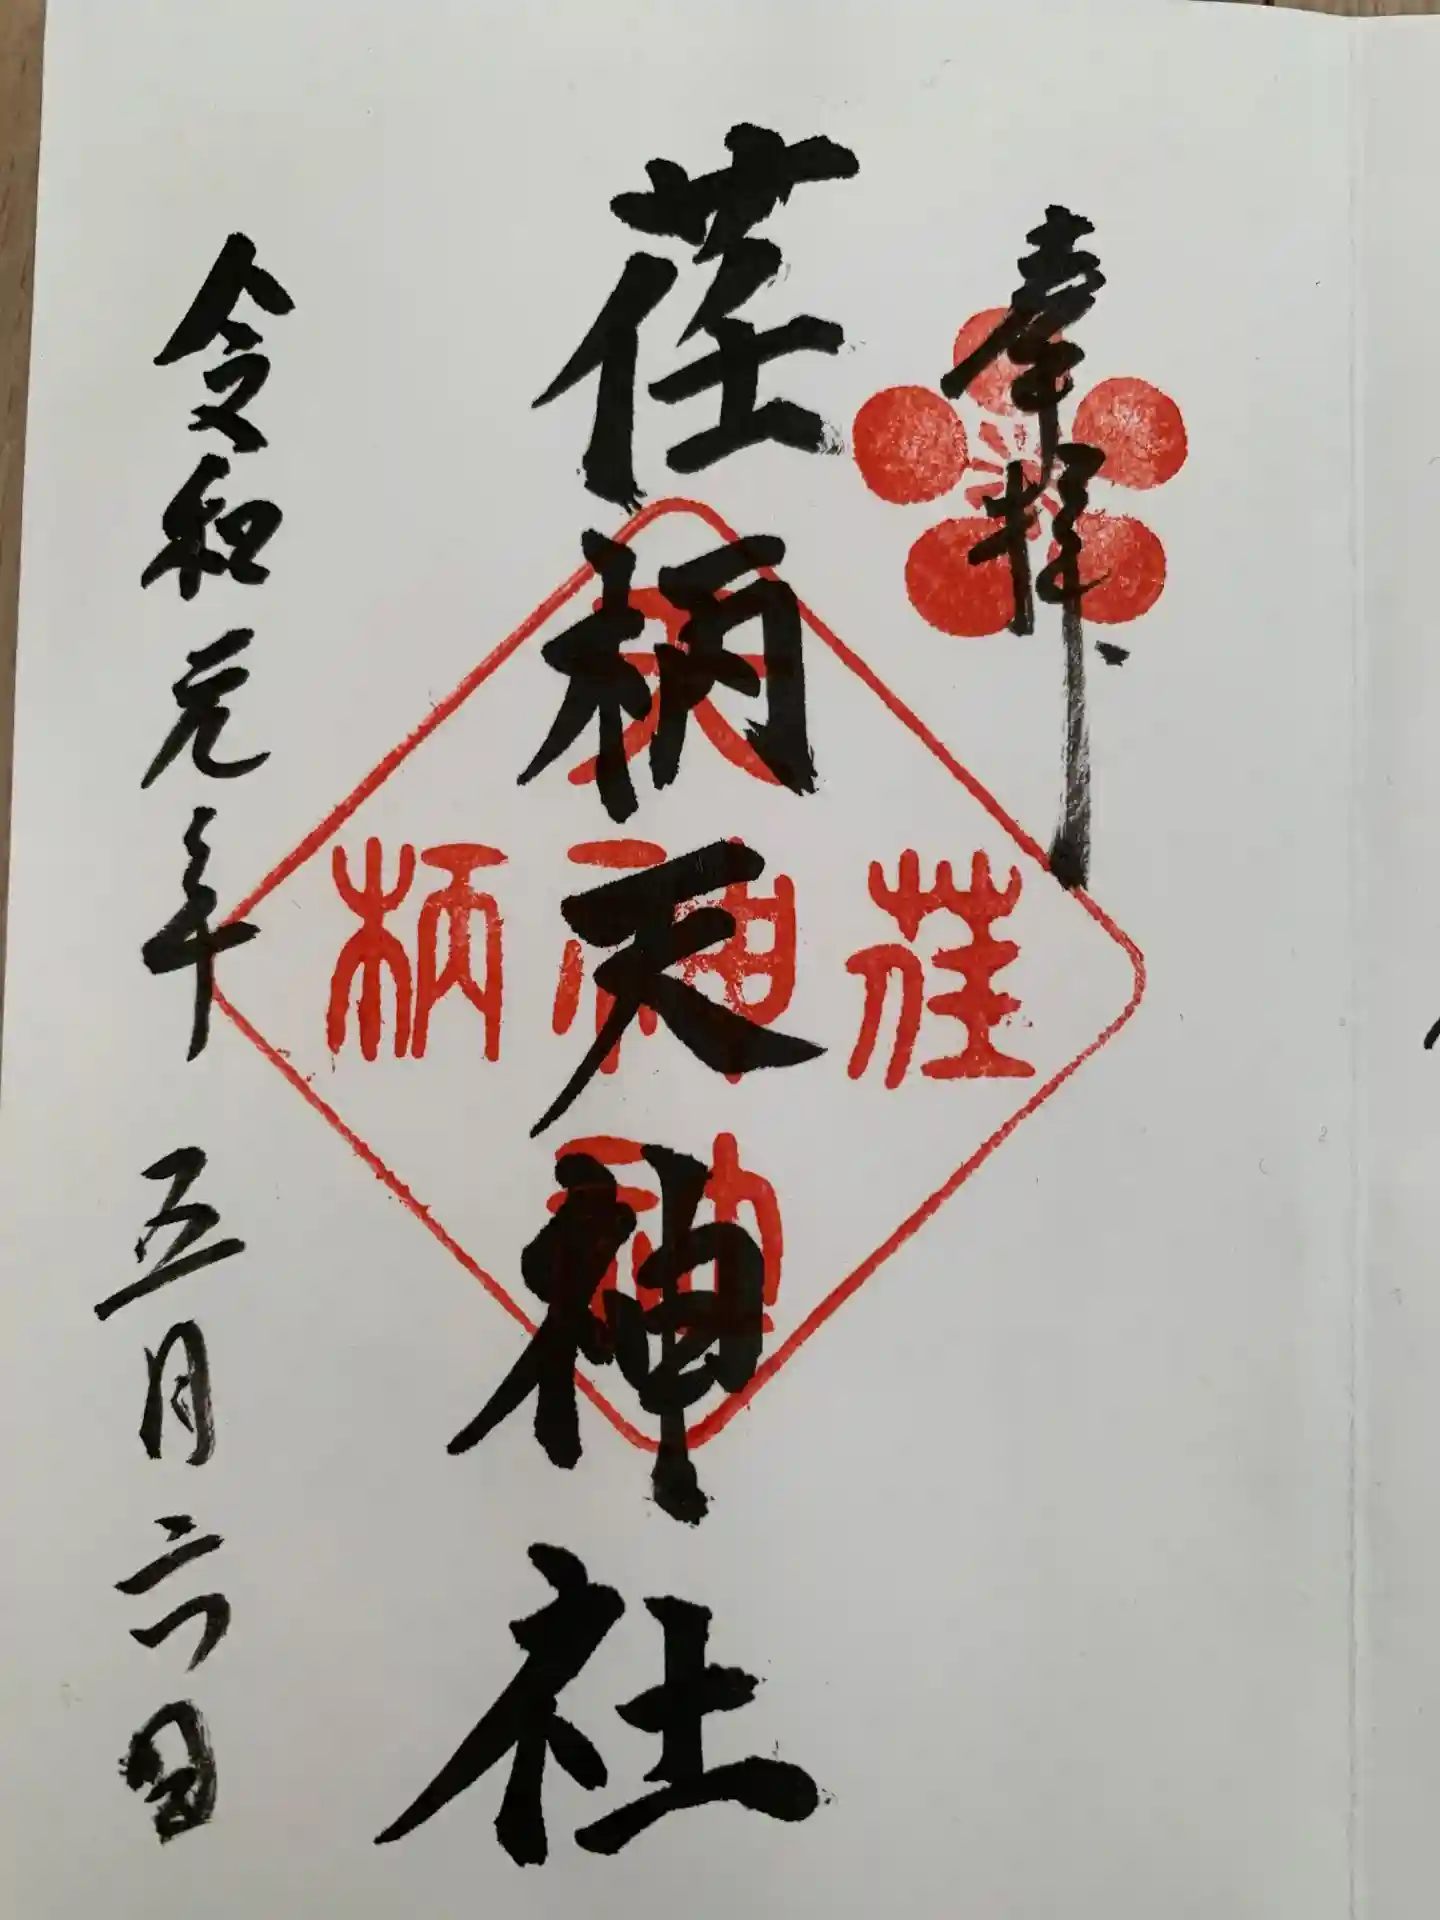 奉拝
荏柄天神社
令和元年 五月六日
荏
天
神
神
柄